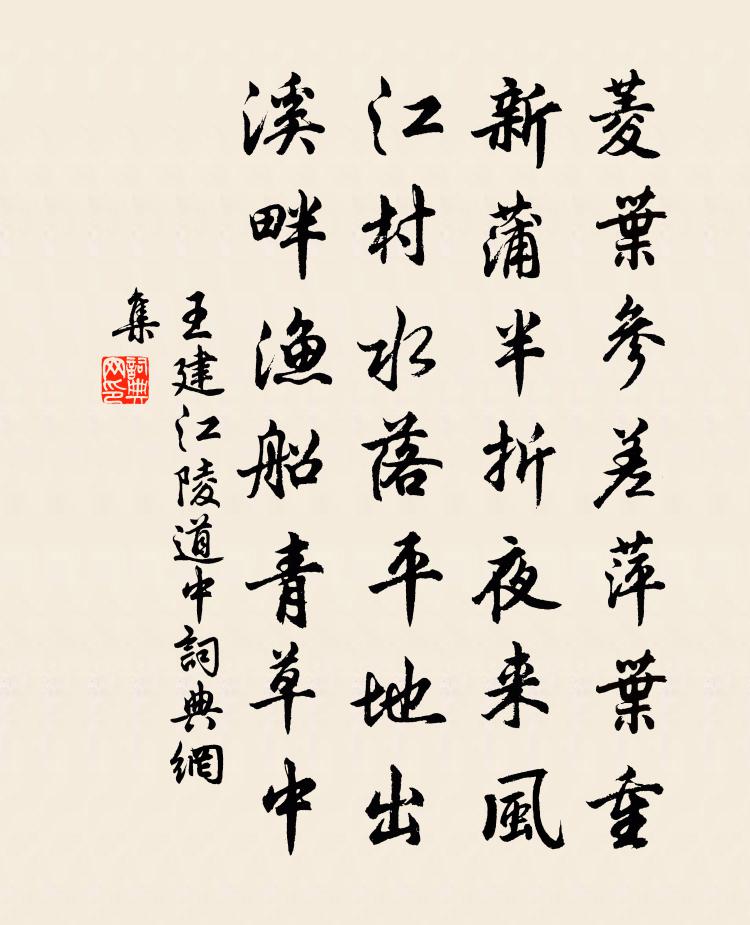 菱葉參差萍葉重
新蒲半折夜来風
江村水落平地出
溪畔漁船青草中
王建江陵道中詞典網
集
詞典
网印